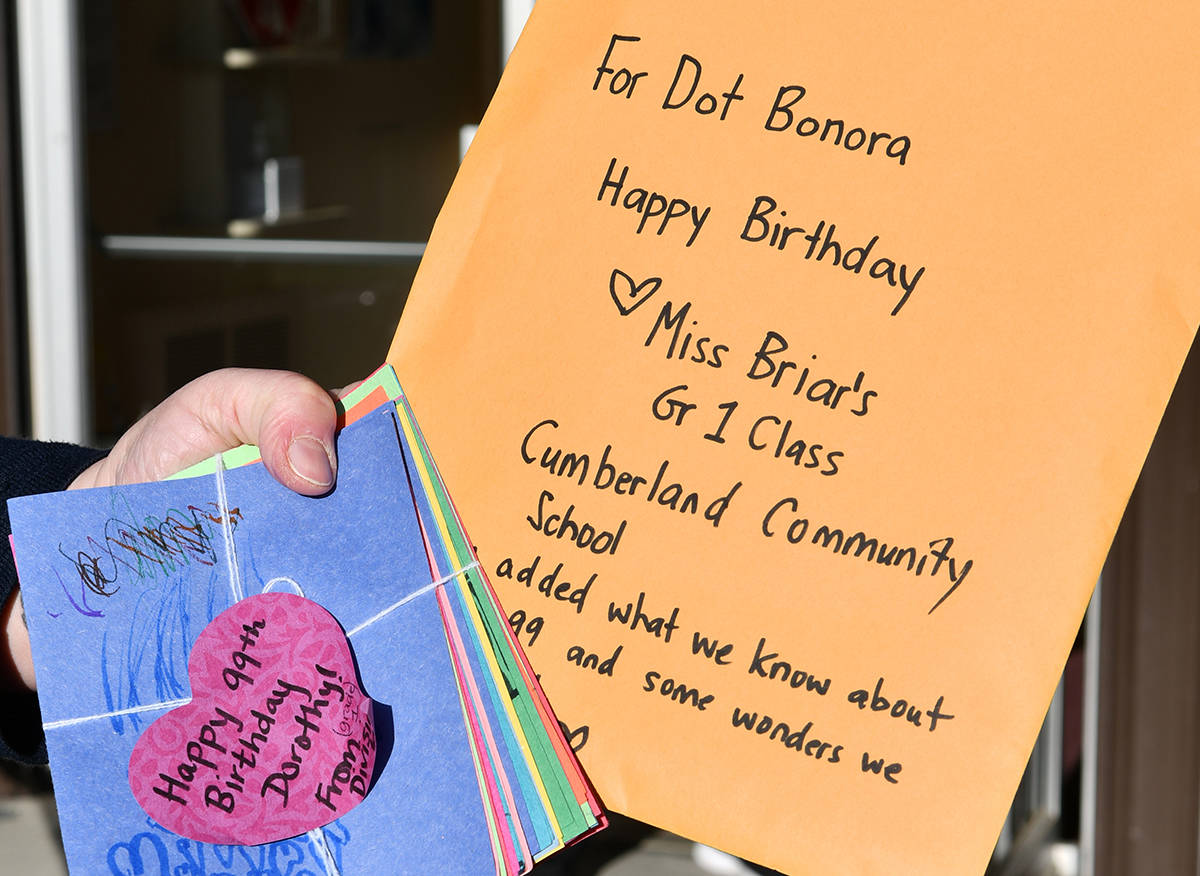 For Dot Bonora
Happy Birthday
Miss Briar's
Gr 1 Class
Cumberland Community
School
added what we know about
99 and some wonders we
Happy 99th
Birthday
Dorothy!
From
Grade 1